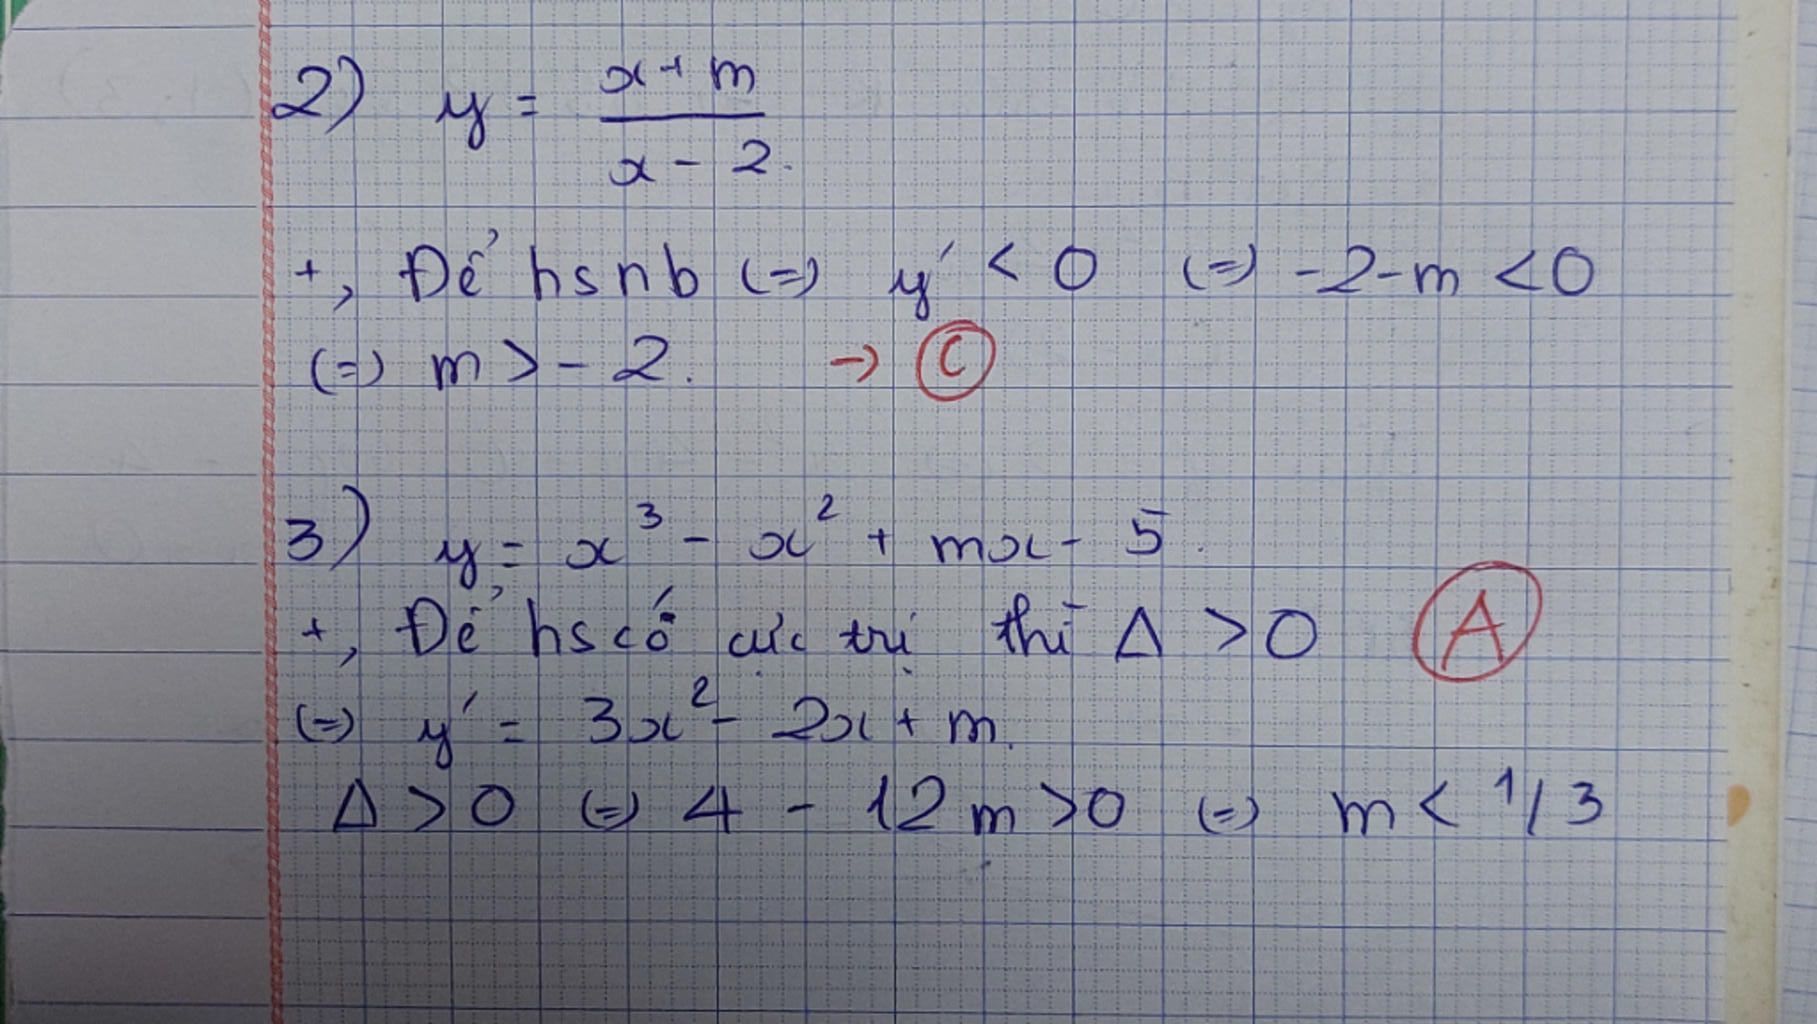 2) y = x + m / x - 2.
+, Để hsnb (=) y' < 0 (=) -2-m < 0
(=) m > - 2. → C
3) y = x³ - x² + mx - 5.
+, Để hs có cực trị thì Δ > 0 A
(=) y' = 3x² - 2x + m.
Δ > 0 (=) 4 - 12m > 0 (=) m < 1/3